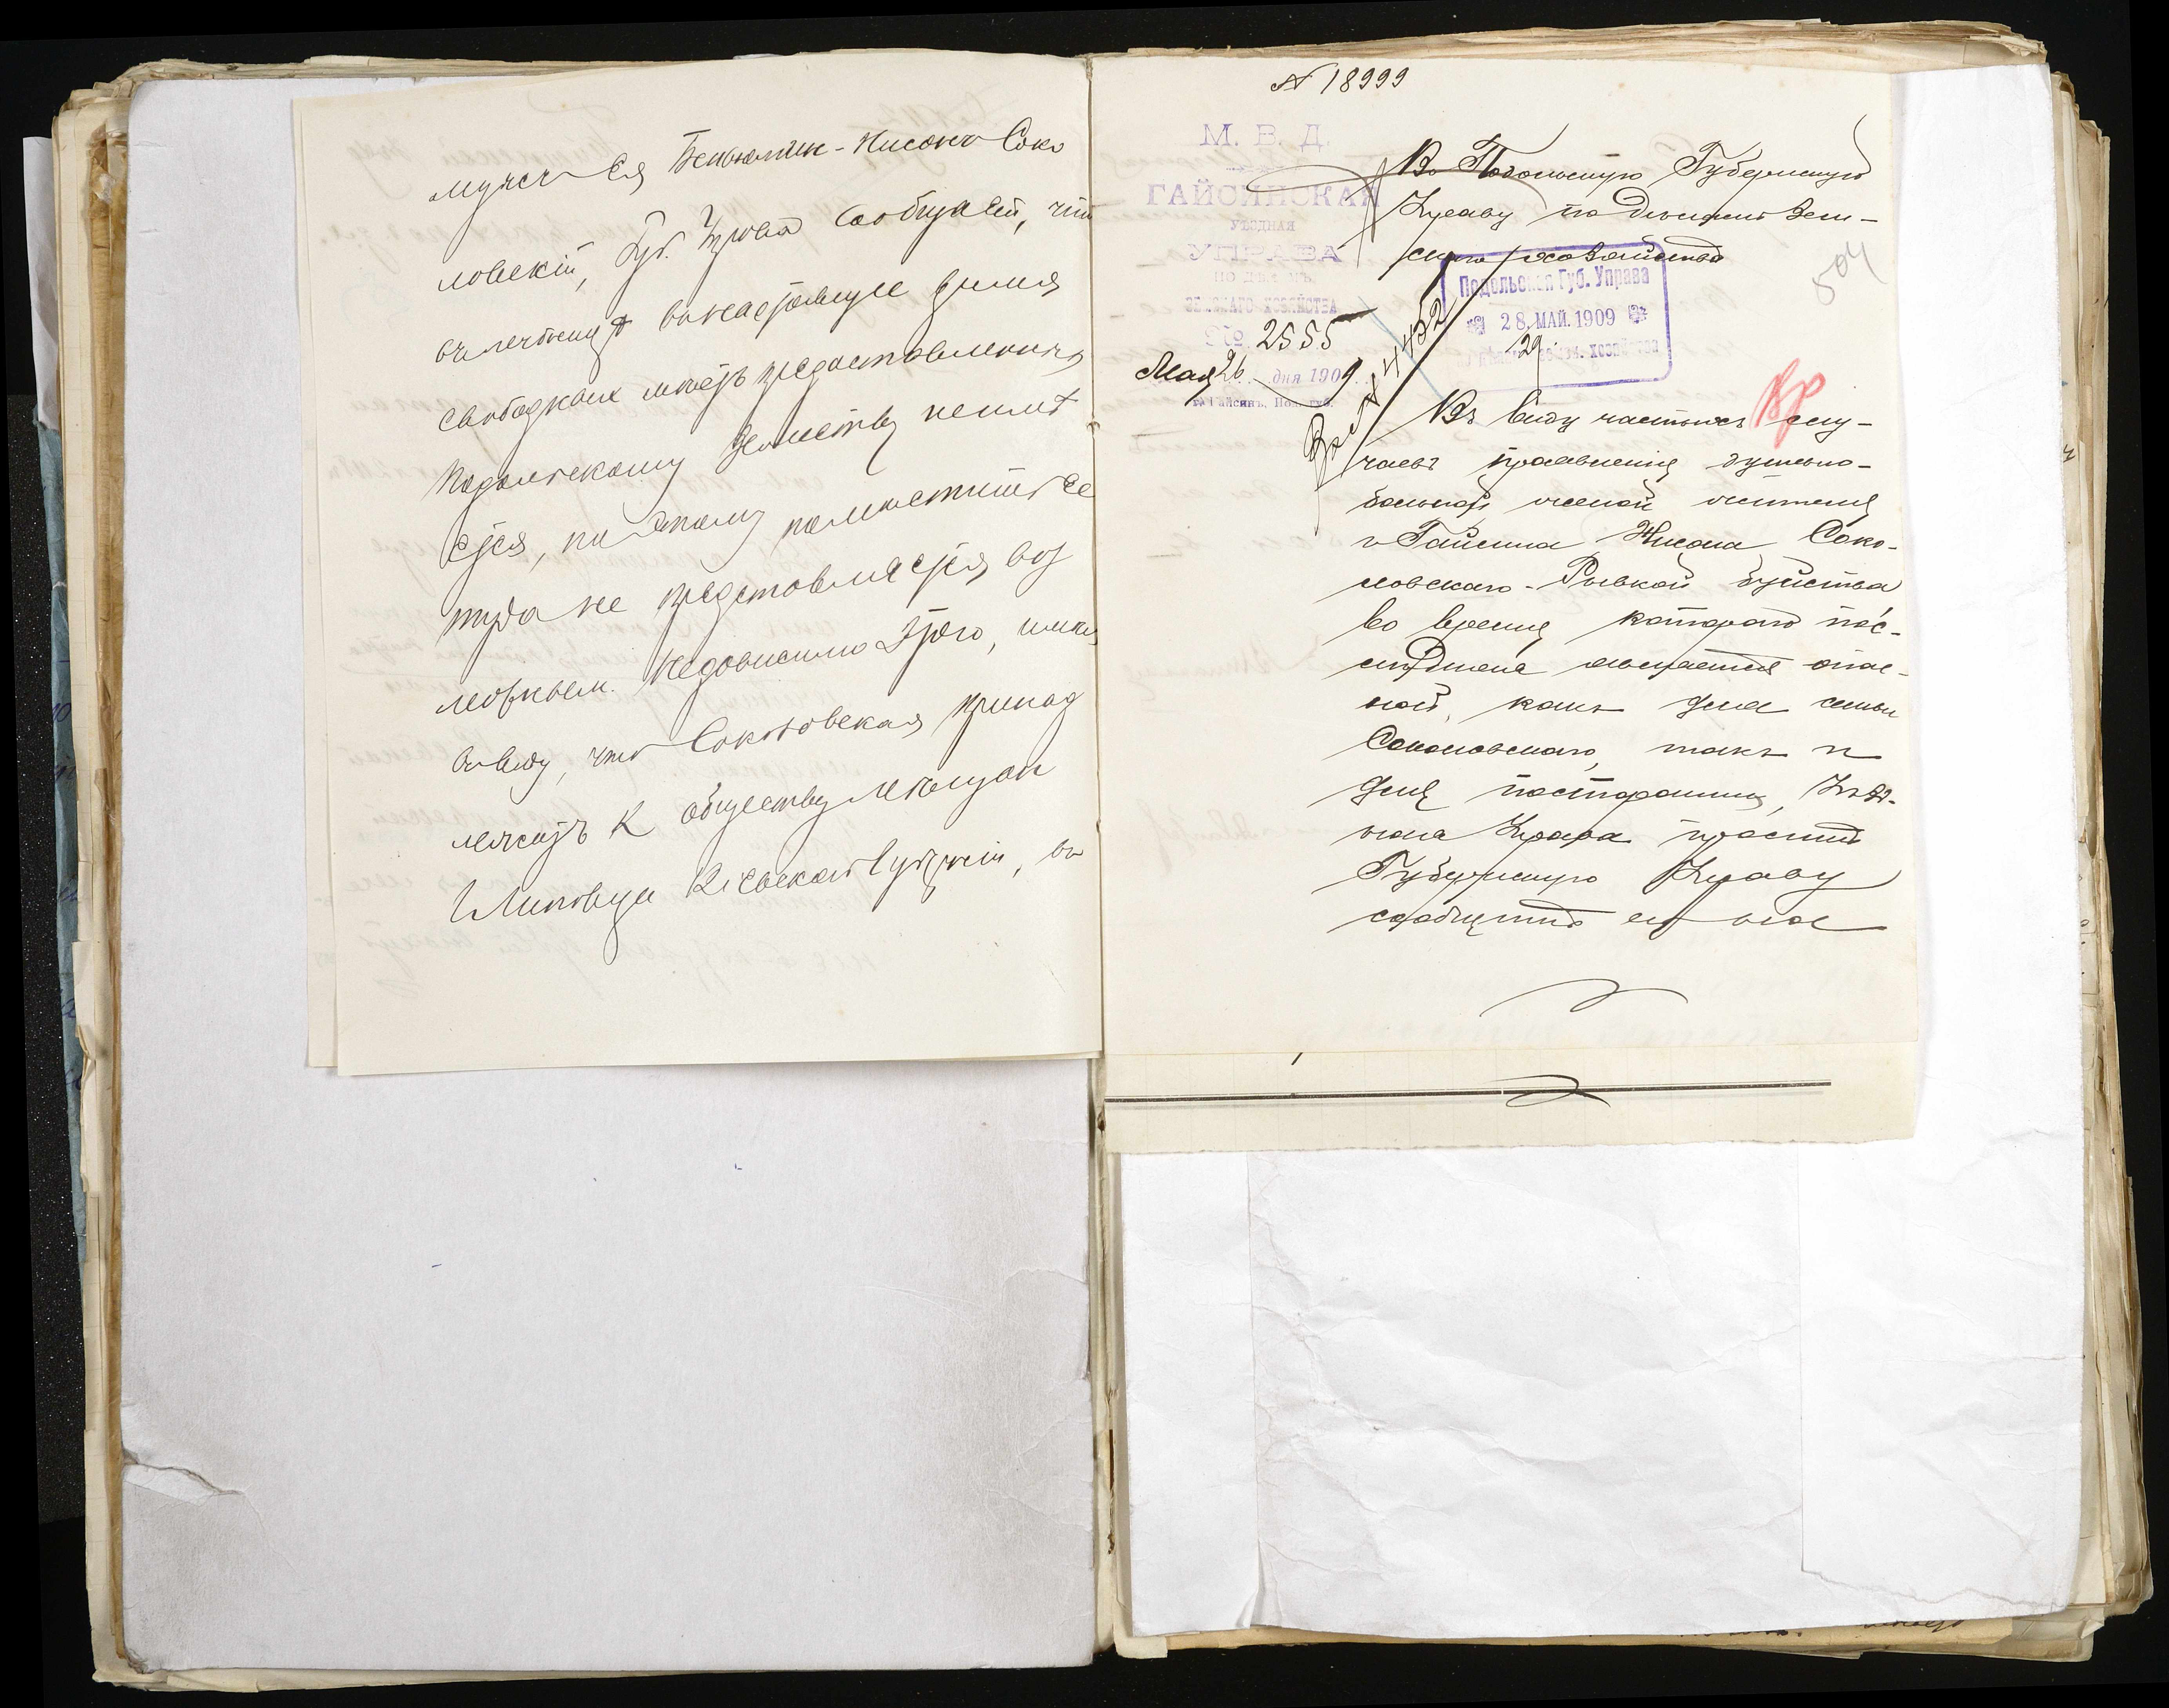 мужъ ея Беньюмин-Нисонъ Соко
ловскій, Губ. Управа сообщаетъ, что
въ лечебницѣ въ настоящее время
свободныхъ мѣстъ предоставленныхъ
Подольскому Земству неимѣ
ется, поэтому помѣстить ее
туда не представляется воз
можнымъ. Независимо этого, имѣя
ввиду, что Соколовская принад
лежитъ к обществу мѣщан
г. Липовца Кіевской губерніи, въ
№ 18999
М. В. Д.
ГАЙСИНСКАЯ
УѢЗДНАЯ
УПРАВА
ПО ДѢЛАМЪ
ЗЕМСКАГО ХОЗЯЙСТВА
№ 2555
Мая 26 дня 1909
г. Гайсинъ, Под. губ.
Въ Подольскую Губернскую
Управу по дѣламъ Зем-
скаго хозяйства
504
Подольская Губ. Управа
28. МАЙ. 1909
по дѣламъ земск. хозяйства
29
№ 4452
Въ виду частыхъ слу-
чаевъ проявленія душевно-
больной женой жителя
г. Гайсина Нисона Соко-
ловскаго - Рывкой буйства
во время котораго пос-
лѣдняя является опас-
ной, какъ для семьи
Соколовскаго, такъ и
для постороннихъ, Уѣзд-
ная Управа проситъ
Губернскую Управу
сообщить ей на